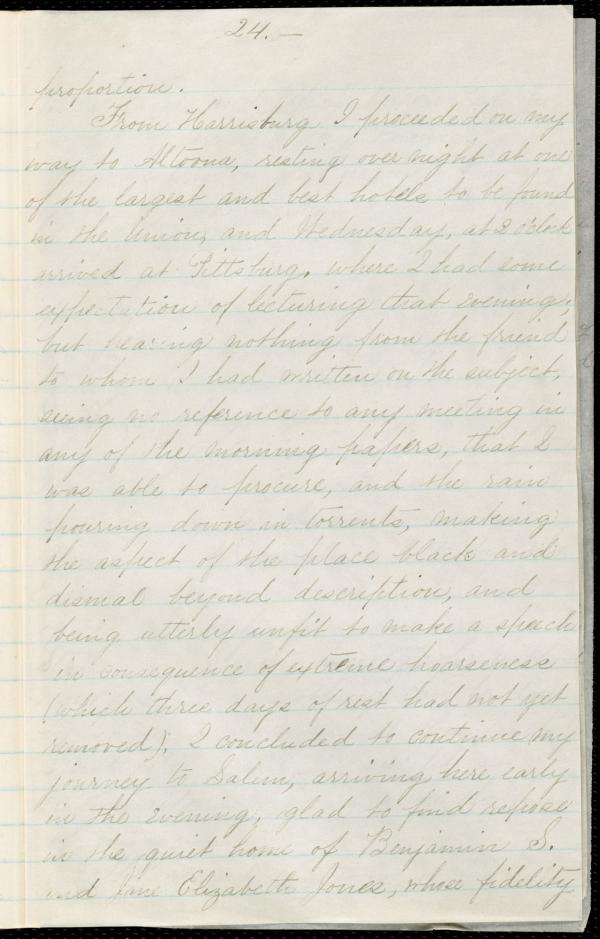 24. —
proportion.
From Harrisburg I proceeded on my
way to Altoona, resting over night at one
of the largest and best hotels to be found
in the Union, and Wednesday, at 2 o'clock
arrived at Pittsburg, where I had some
expectation of lecturing that evening;
but hearing nothing from the friend
to whom I had written on the subject,
seeing no reference to any meeting in
any of the morning papers, that I
was able to procure, and the rain
pouring down in torrents, making
the aspect of the place black and
dismal beyond description, and
being utterly unfit to make a speech
in consequence of extreme hoarseness
(which three days of rest had not yet
removed), I concluded to continue my
journey to Salem, arriving here early
in the evening, glad to find repose
in the quiet home of Benjamin S.
and Jane Elizabeth Jones, whose fidelity